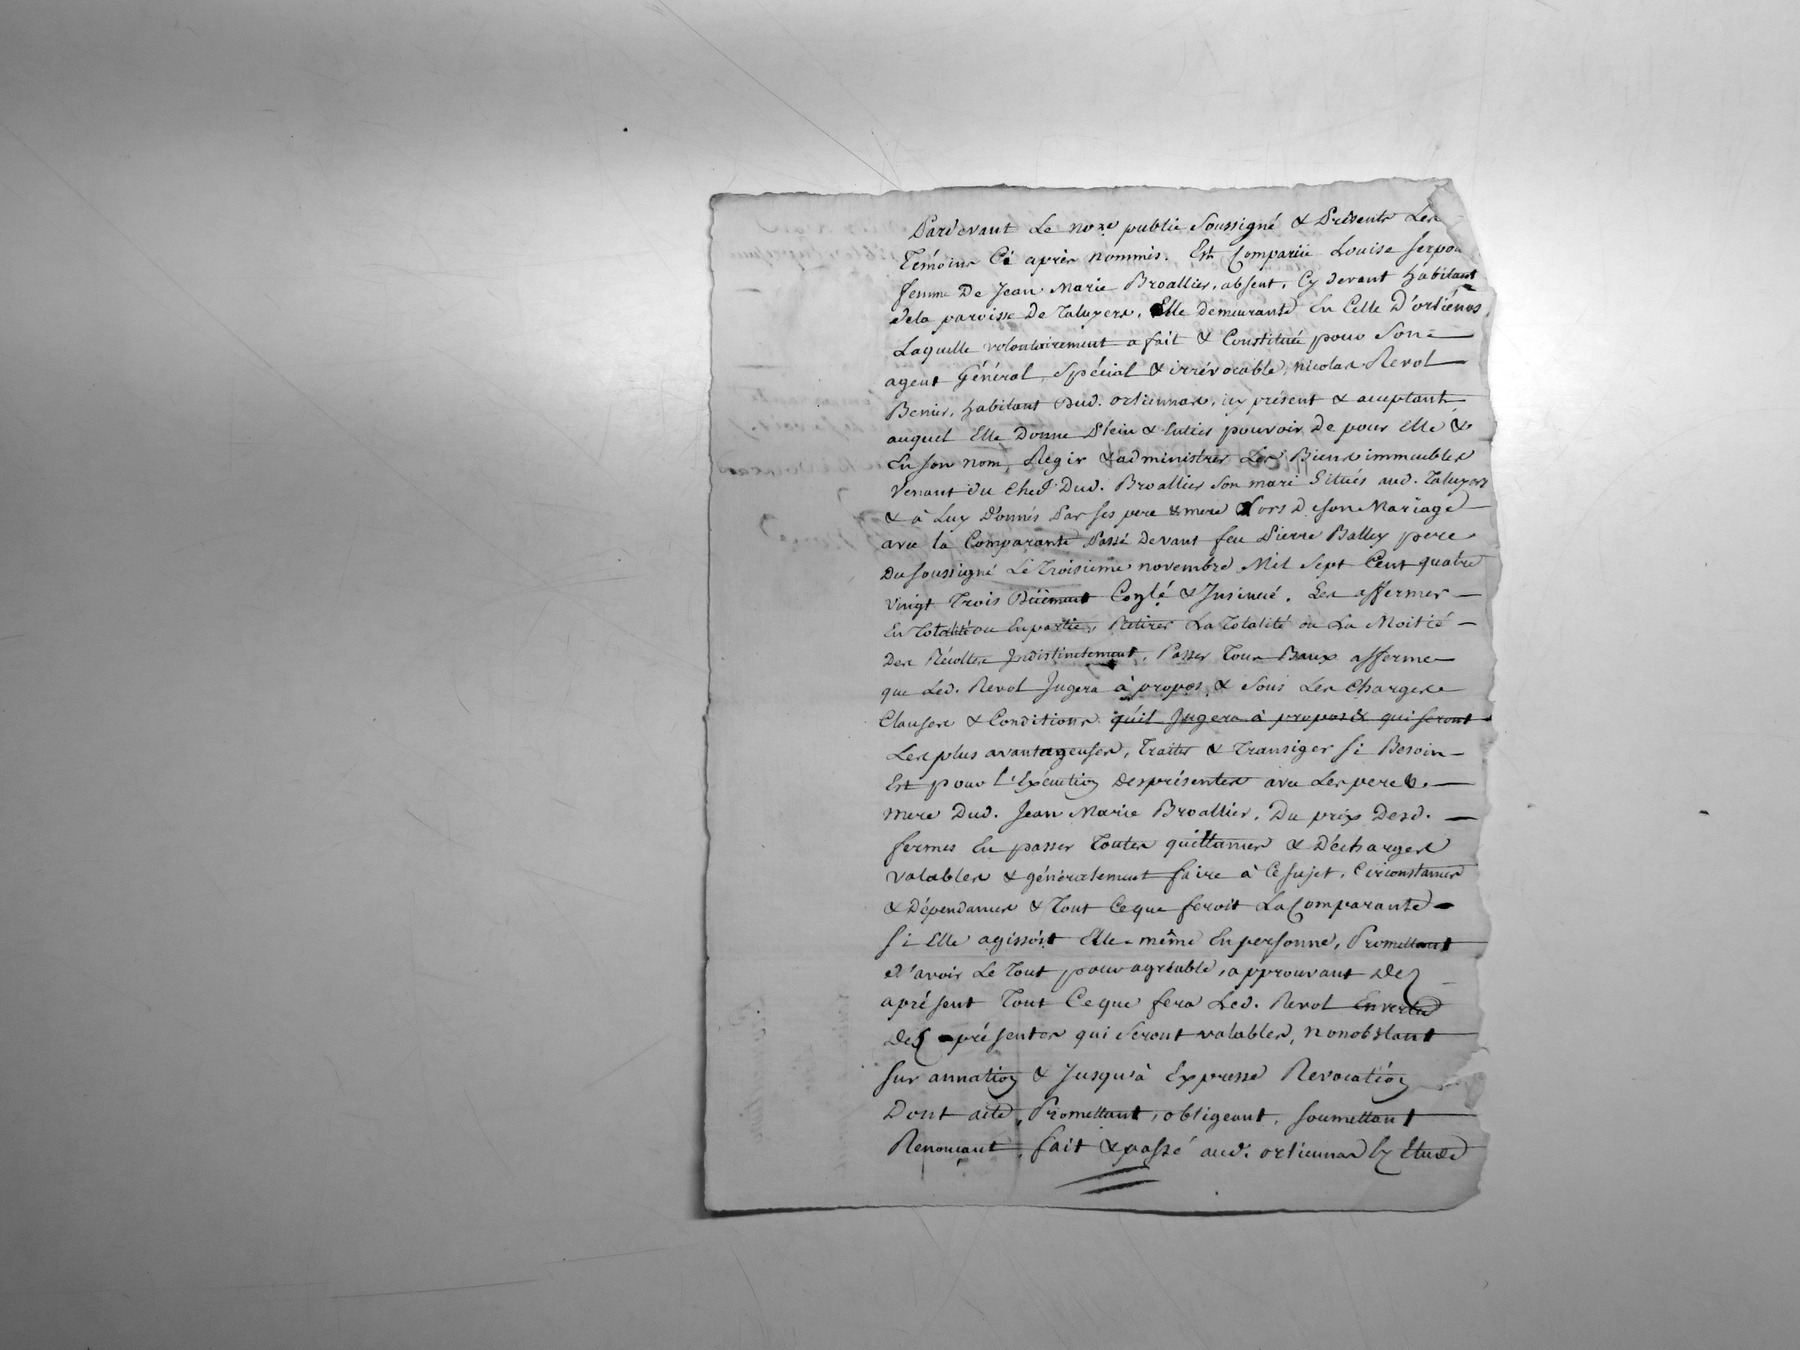 Pardevant Le no.re public Soussigné & Présents Les
Témoins Cì après nommés. Est Comparüe Louise
femme De Jean Marie Broallier, absent, Cy devant habitant
dela paroisse De Taluyers, Elle demeurante En Celle D'orliénas,
Laquelle volontairement a fait & Constitué pour Son
agent Général, Spécial & irrévocable, nicolas Revol
Benier, habitant Dud. orliennas, icy présent & acceptant
auquel Elle Donne Plein & Entier pouvoir De pour Elle &
En son nom, Régir & administrer Les Biens immeubles
Venant du Chef Dud. Broallier Son mari Situés aud. Taluyers
& à Luy Donnés Par ses pere & mere Lors De son Mariage
avec la Comparante Passé Devant feu Pierre Balley pere
Du soussigné Le Troisieme novembre Mil Sept Cent quatre
vingt Trois Düement Conlé & Insinué. Les affermer
En Totalité ou En partie, Retirer La Totalité ou La Moitié
Des Récoltes Indistinctement, Passer Tous Baux afferme
que Led. Revol Jugera à propos, & Sous Les Charges
Clauses & Conditions qu'il Jugera à propos & qui seront
Les plus avantageuses, Traiter & Transiger Si Besoin
Est pour l'Exécution Des présentes avec Les pere &
mere Dud. Jean Marie Broallier, Du prix Desd.
fermes En passer Toutes quittances & Décharges
valables & généralement faire à Ce sujet, Circonstances
& Dépendances & Tout Ce que feroit La Comparante
Si Elle agissoit Elle-même En personne, Promettant
d'avoir Le Tout pour agréable, approuvant Des
aprésent Tout Ce que fera Led. Revol En vertu
Des présentes qui Seront valables, nonobstant
Sur annation & Jusqu'à Expresse Revocation
Dont acte, Promettant, obligeant, Soumettant
Renonçant, fait & passé aud. orliennas En Etude